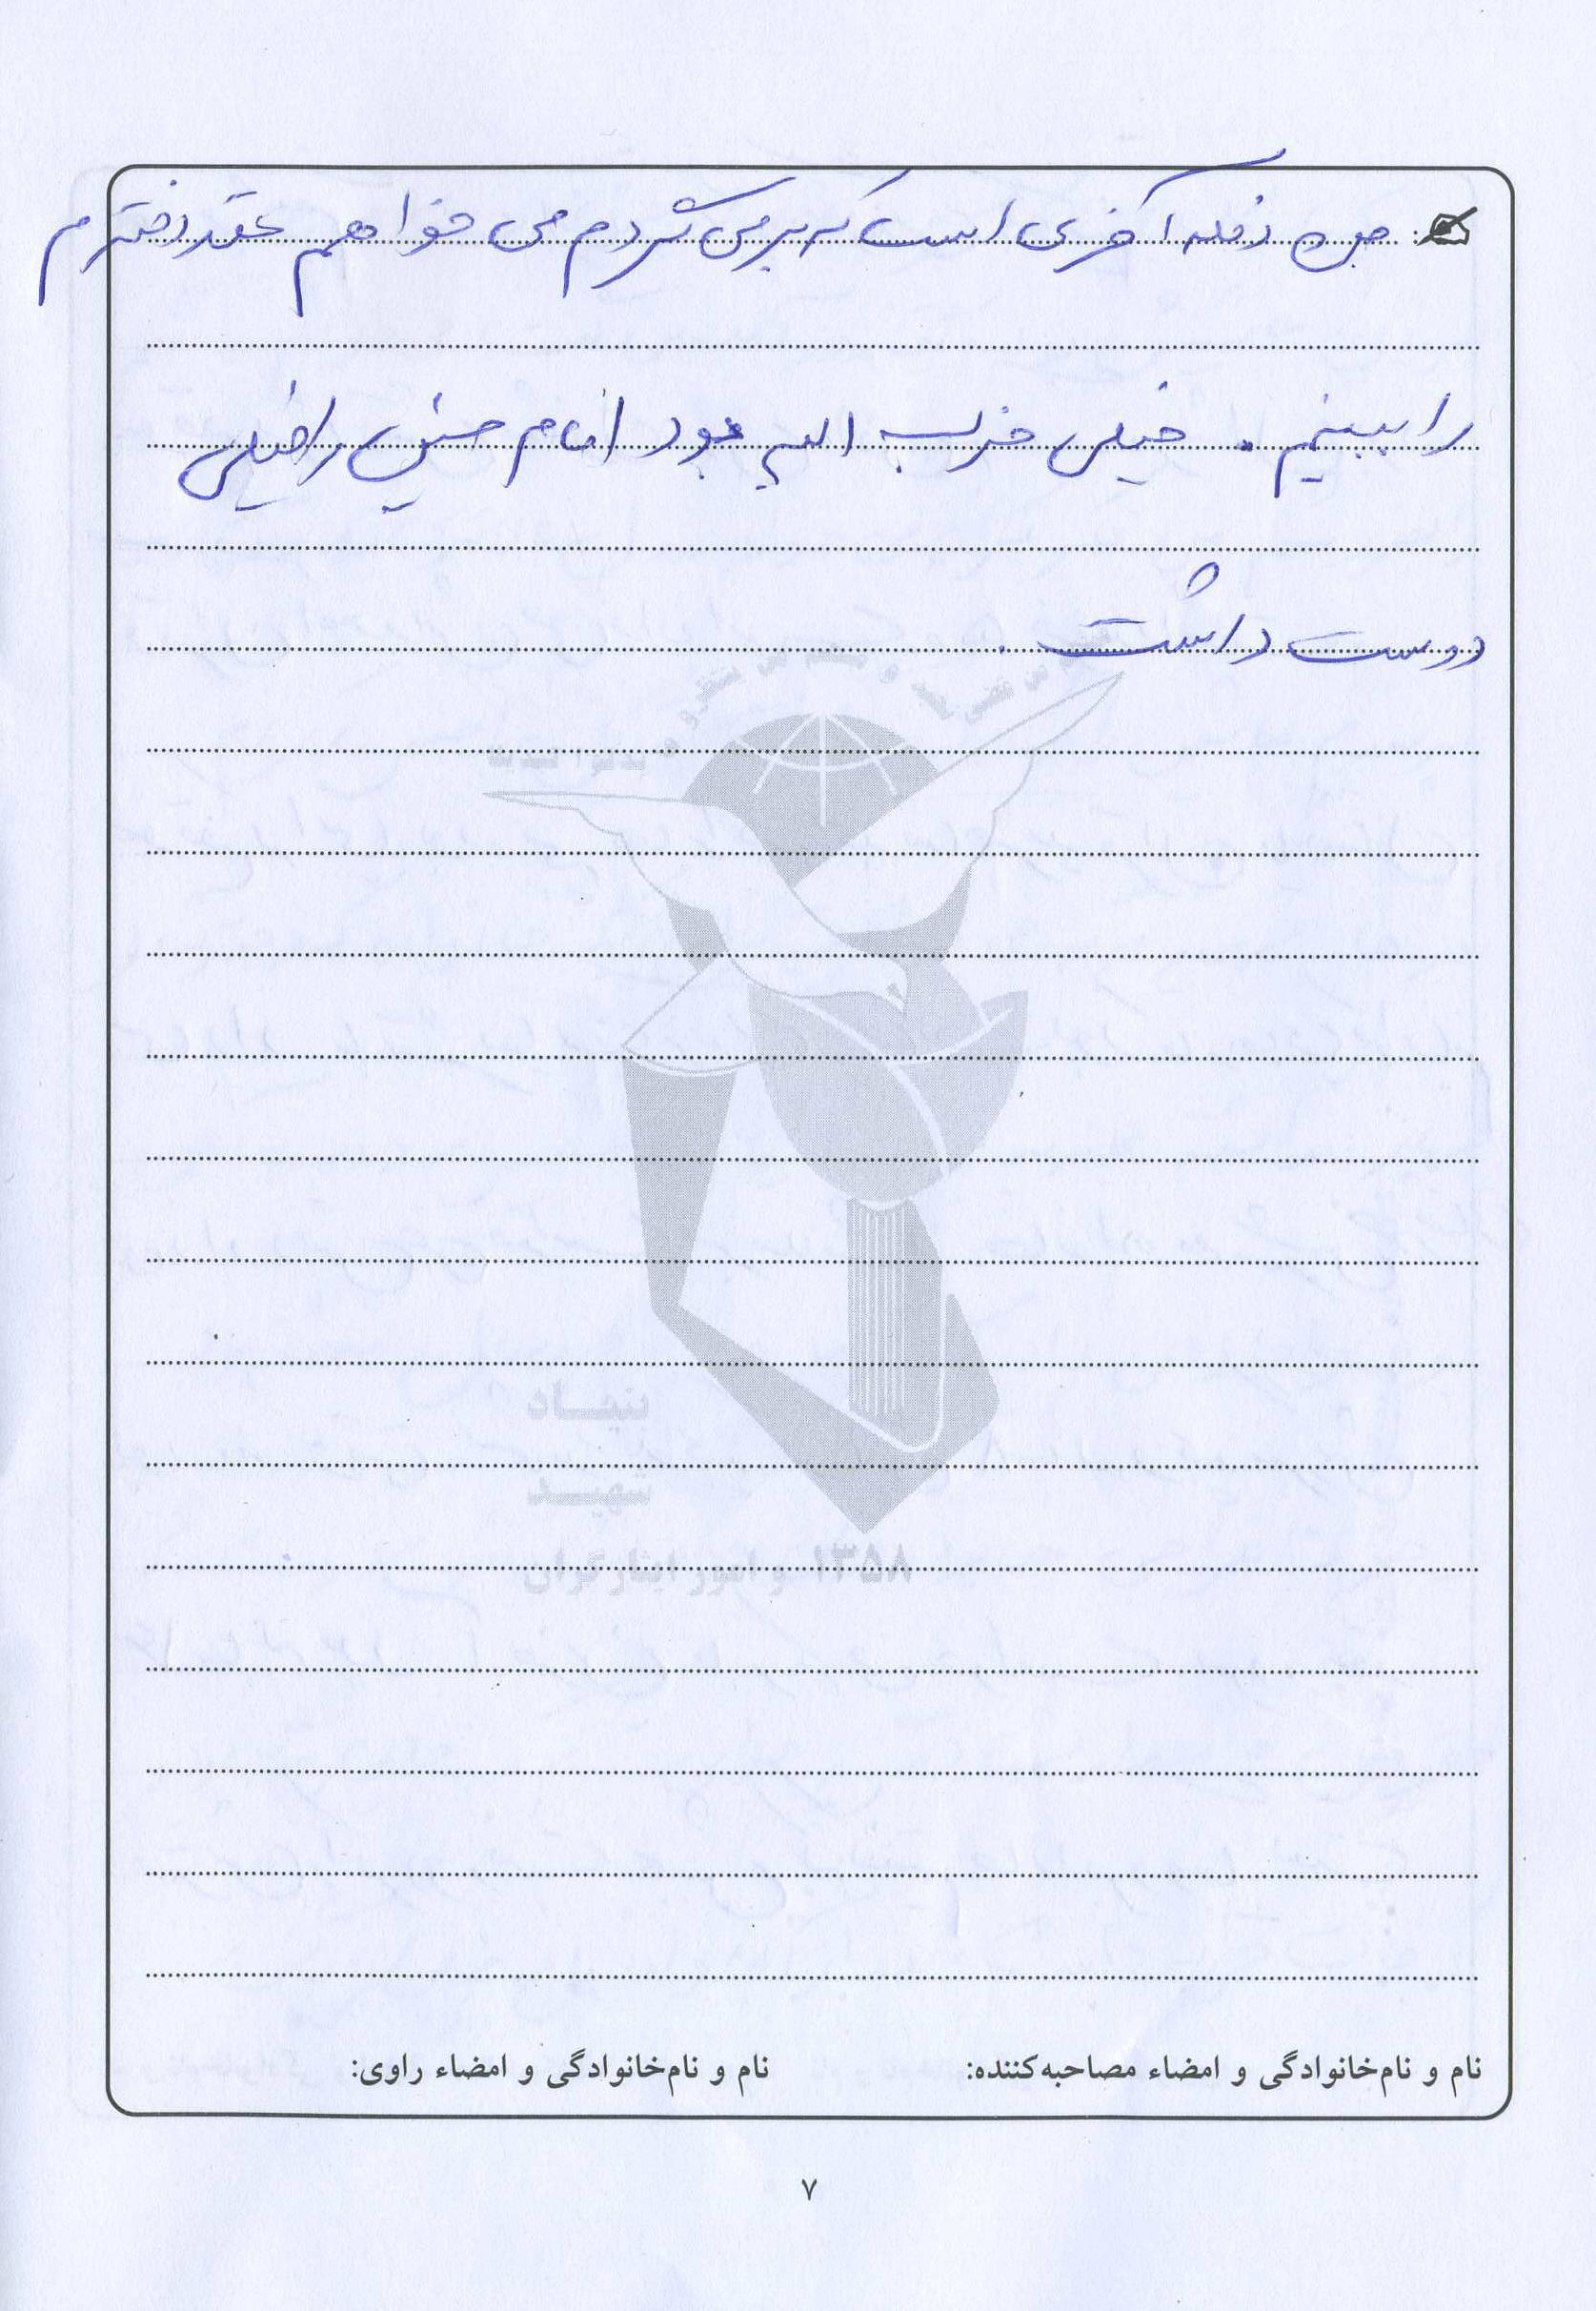 جون دفعه آخری است که برمی گردم می خواهم عقد دخترم
را ببینم. خیلی حزب الهی بود امام خمینی را خیلی
دوست داشت.
بنیاد
شهید
و امور ایثارگران ۱۳۵۸
نام و نام‌خانوادگی و امضاء مصاحبه‌کننده: نام و نام‌خانوادگی و امضاء راوی:
۷